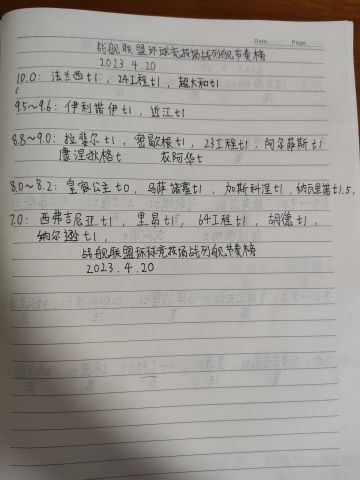 Date. Page.
战舰联盟环球竞技场战列舰节奏榜
2023 4.20
10.0: 法兰西t1, 24工程t1, 超大和t1
9.5~9.6: 伊利诺伊t1, 近江t1
8.8~9.0: 拉斐尔t1, 密歇根t1, 23工程t1, 阿尔萨斯t1
摩涅狄格t 农阿华t
8.0~8.2: 皇家公主t0, 马萨诸塞t1, 加斯科涅t1, 纳瓦里诺t1.5,
7.0: 西弗吉尼亚t1, 里昂t1, 64工程t1, 胡德t1,
纳尔逊t1,
战舰联盟环球竞技场战列舰节奏榜
2023.4.20